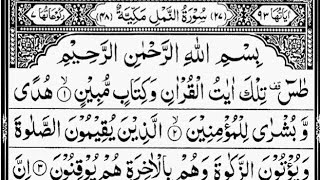 اٰيَاتُهَا ٩٣ (٢٧) سُوْرَةُ النَّمْلِ مَكِّيَّةٌ (٤٨) رُكُوْعَاتُهَا ٧
بِسْمِ اللّٰهِ الرَّحْمٰنِ الرَّحِيْمِ
طٰسٓ ۚ تِلْكَ اٰيٰتُ الْقُرْاٰنِ وَكِتَابٍ مُّبِيْنٍ ۙ﴿١﴾ هُدًى
وَّ بُشْرٰى لِلْمُؤْمِنِيْنَ ۙ﴿٢﴾ الَّذِيْنَ يُقِيْمُوْنَ الصَّلٰوةَ
وَ يُؤْتُوْنَ الزَّكٰوةَ وَهُمْ بِالْاٰخِرَةِ هُمْ يُوْقِنُوْنَ ﴿٣﴾ اِنَّ